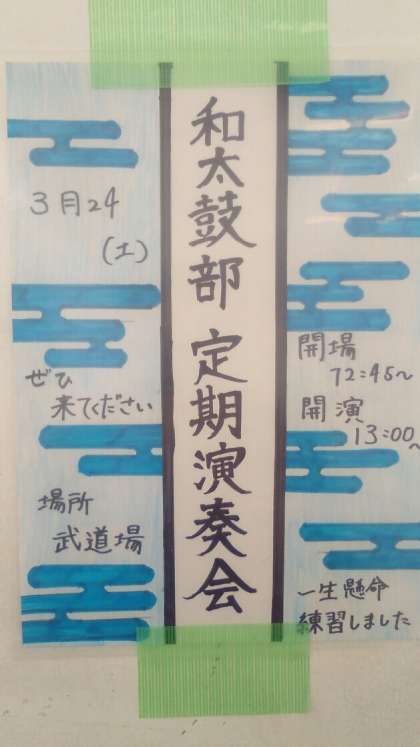 和太鼓部 定期演奏会
開場
12:45〜
開演
13:00〜
一生懸命
練習しました
3月24
(土)
ぜひ
来てください
場所
武道場